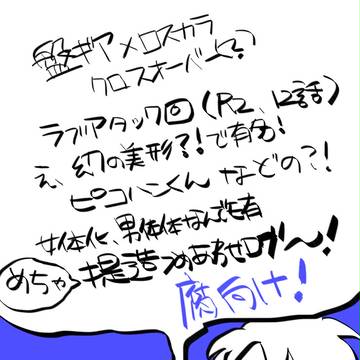 盤ギア×ロスカラ
クロスオーバーは?
ラブアタック回(R2、12話)
え、幻の美形?!で有名!
ピコハンくんなどの?!
女体化、男体化なんでも有
めちゃ捏造つめあわせログん!
腐向け!